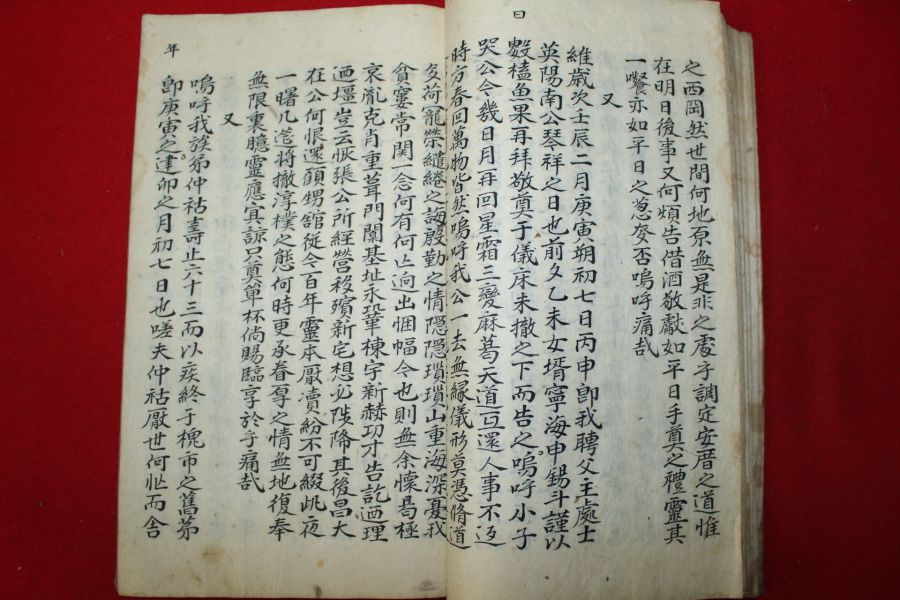 曰
之西岡然世間何地原無是非之處乎調定安厝之道惟
在明日後事又何煩告借酒敬獻如平日手奠之禮靈其
一嚮亦如平日之否嗚呼痛哉
又
維歲次壬辰二月庚寅朔初七日丙申卽我聘父主處士
英陽南公琴祥之日也前夕乙未女壻寧海申錫斗謹以
數榼魚果再拜敬奠于儀床未撤之下而告之嗚呼小子
哭公今幾日月再回星霜三變麻葛天道亘還人事不返
時方春回萬物皆然嗚呼我公一去無緣儀形莫憑脩道
多荷寵榮繾綣之誨殷勤之情隱隱瑣瑣山重海深憂我
貧窶常関一念何有何亡逈出悃愊今也則無余懷曷極
哀胤克肖重葺門闌基址永鞏棟宇新赫功才告訖迺理
迺壃豈云恢張公所經營移殯新宅想必陟降其後昌大
在公何恨還顧甥舘從今百年靈本厭瀆紛不可綴此夜
一曙几筵將撤淳樸之態何時更承眷專之情無地復奉
無限裏臆靈應宜諒只奠單杯倘賜臨享於乎痛哉
又
年
嗚呼我族弟仲祜壽止六十三而以疾終于槐市之舊第
卽庚寅之建卯之月初七日也嗟夫仲祜厭世何忙而舍